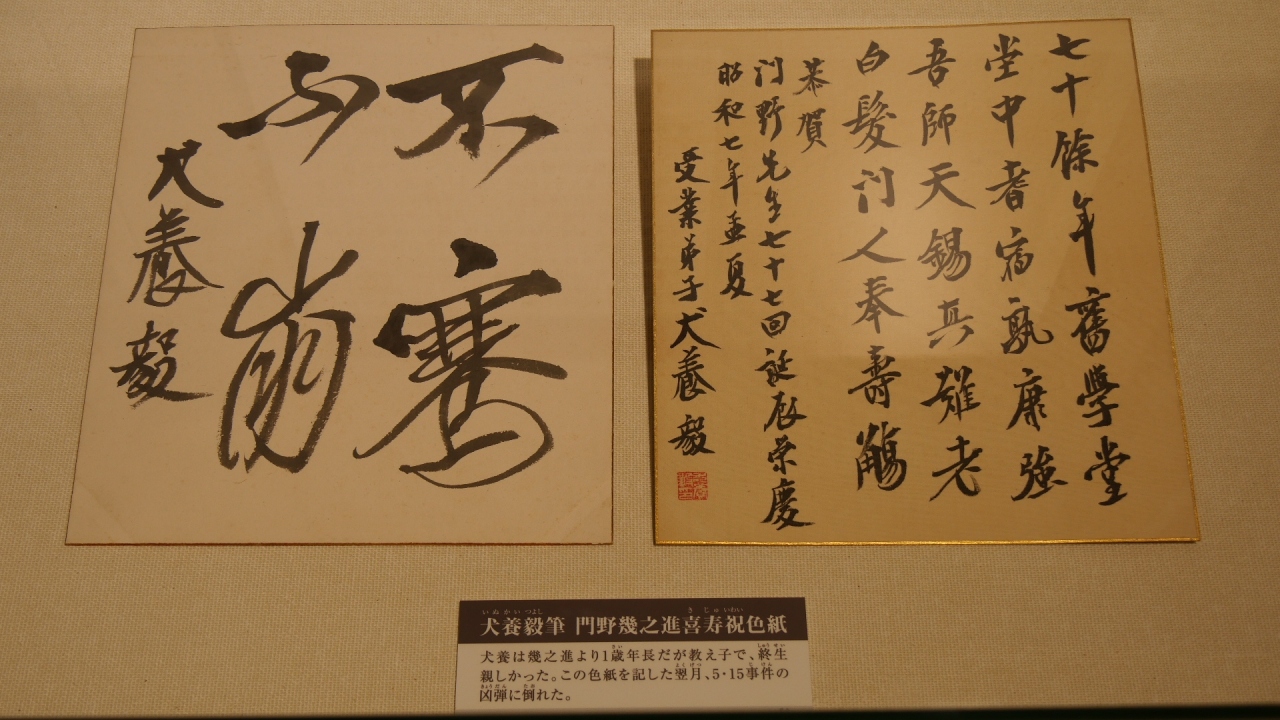 不騫
不崩
犬養毅
七十餘年舊學堂
堂中耆宿孰康強
吾師天錫其難老
白髮門人奉壽觴
恭賀
門野先生七十七回誕辰栄慶
昭和七年孟夏
受業弟子犬養毅
犬養毅筆 門野幾之進喜寿祝色紙
犬養は幾之進より1歳年長だが教え子で、終生
親しかった。この色紙を記した翌月、5・15事件の
凶弾に倒れた。